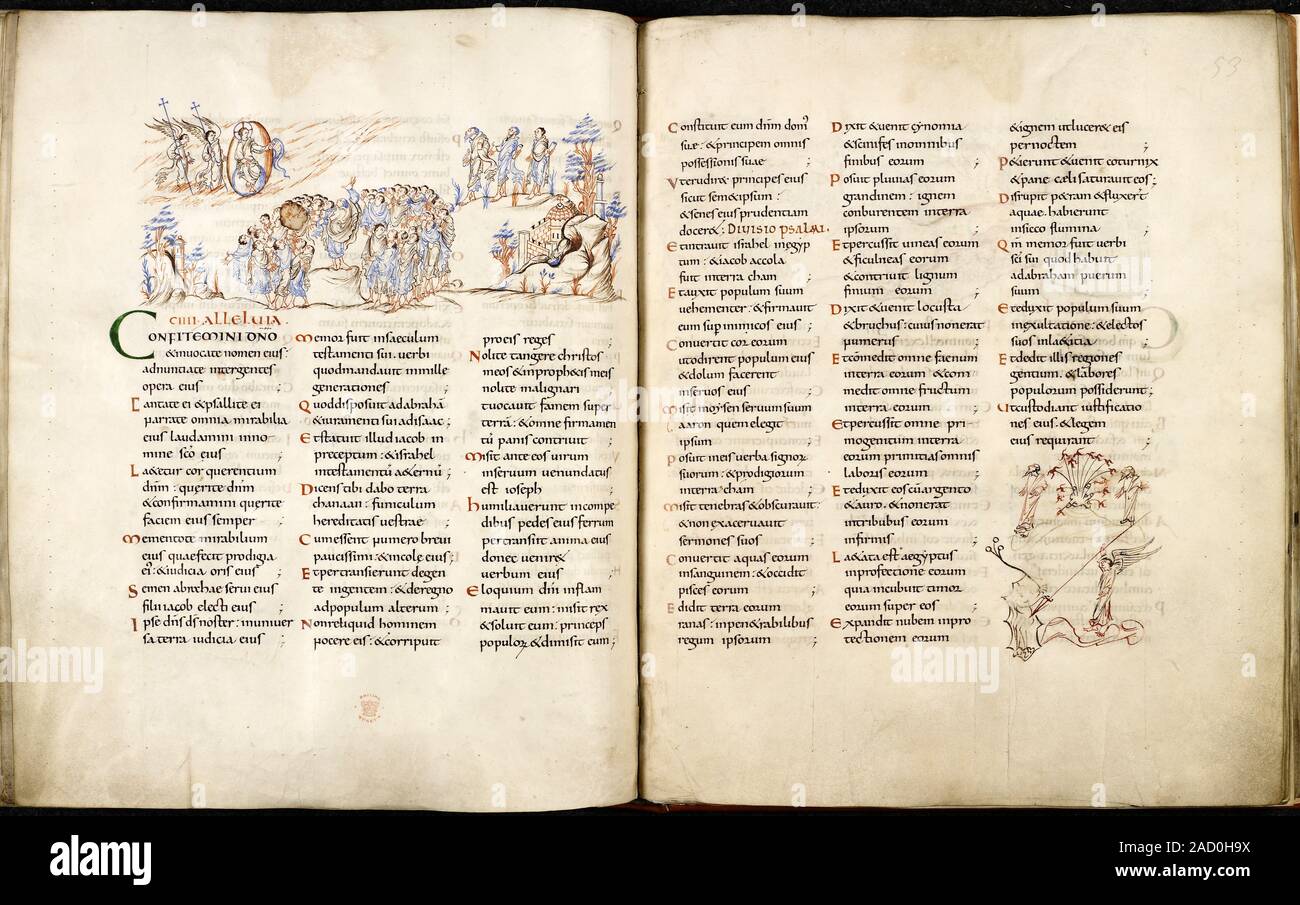 53
CIIII. ALLELUIA.
CONFITEMINI DNO
&invocate nomen eius:
adnuntiate intergentes
opera eius ;
Cantate ei &psallite ei
narrate omnia mirabilia
eius laudamini inno
mine sco eius ;
L&&ur cor querentium
dnm: querite dnm
&confirmamini querite
faciem eius semper ;
Mementote mirabilium
eius quaefecit prodigia
ei: &iudicia oris eius ;
Semen abrahae servi eius
filii iacob electi eius ;
Ipse dns ds noster: inuniver
sa terra iudicia eius ;
Memor fuit insaeculum
testamenti sui. verbi
quodmandavit inmille
generationes ;
Quoddisposuit adabrahā
&iuramenti sui adisaac;
Etstatuit illud iacob in
preceptum: &israhel
intestamentū a&ernū;
Dicens tibi dabo terra
chanaan: funiculum
hereditatis vestrae ;
Cumessent numero brevi
paucissimi: &incole eius;
Etpertransierunt degen
te ingentem: &deregno
adpopulum alterum ;
Nonreliquid hominem
nocere eis: &corripuit
proeis reges ;
Nolite tangere christos
meos &inproph&is meis
nolite malignari ;
&vocavit famem super
terrā: &omne firmamen
tū panis contrivit ;
Misit ante eos virum
inservum venundatus
est ioseph ;
humiliaverunt incompe
dibus pedes eius ferrum
pertransiit anima eius
donec venir&
verbum eius ;
Eloquium dni inflam
mavit eum: misit rex
&solvit eum: princeps
populoꝝ &dimisit eum;
Constituit eum dnm dom'
suae: &principem omnis
possessionis suae ;
Uterudir& principes eius
sicut sem&ipsum:
&senes eius prudentiam
docer&: DIVISIO PSALMI.
Etintravit israhel inęgyp
tum: &iacob accola
fuit interra cham ;
Etauxit populum suum
vehementer: &firmavit
eum sup inimicos eius ;
Convertit cor eorum
utodirent populum eius
&dolum facerent
inservos eius ;
Misit moysen servum suum
aaron quem elegit
ipsum ;
Posuit ineis verba signoꝝ
suorum: &prodigiorum
interra cham ;
Misit tenebras &obscuravit:
&non exacervavit
sermones suos ;
Convertit aquas eorum
insanguinem: &occidit
pisces eorum ;
Edidit terra eorum
ranas: inpen&rabilibus
regum ipsorum ;
Dixit &venit cynomia
&scinifes inomnibus
finibus eorum ;
Posuit pluvias eorum
grandinem: ignem
conburentem interra
ipsorum ;
Etpercussit vineas eorum
&ficulneas eorum
&contrivit lignum
finium eorum ;
Dixit &venit locusta
&bruchus: cuius nonerat
numerus ;
Etcomedit omne faenum
interra eorum &com
medit omne fructum
interra eorum ;
Etpercussit omne pri
mogenitum interra
eorum primitias omnis
laboris eorum ;
Eteduxit eos cūargento
&auro. &nonerat
intribubus eorum
infirmis ;
L&ata est aegyptus
inprofectione eorum
quia incubuit timor
eorum super eos ;
Expandit nubem inpro
tectionem eorum
&ignem utlucer& eis
per noctem ;
P&ierunt &venit coturnix
&pane caeli saturavit eos;
Disrupit p&ram &fluxert
aquae. habierunt
insicco flumina ;
Qm memor fuit verbi
sci sui quod habuit
adabraham puerum
suum ;
Eteduxit populum suum
inexultatione: &electos
suos inl&icia ;
Etdedit illis regiones
gentium. &labores
populorum possiderunt;
Utcustodiant iustificatio
nes eius. &legem
eius requirant ;
BRITISH
MUSEUM
alamy
Image ID: 2AD0H9X
www.alamy.com